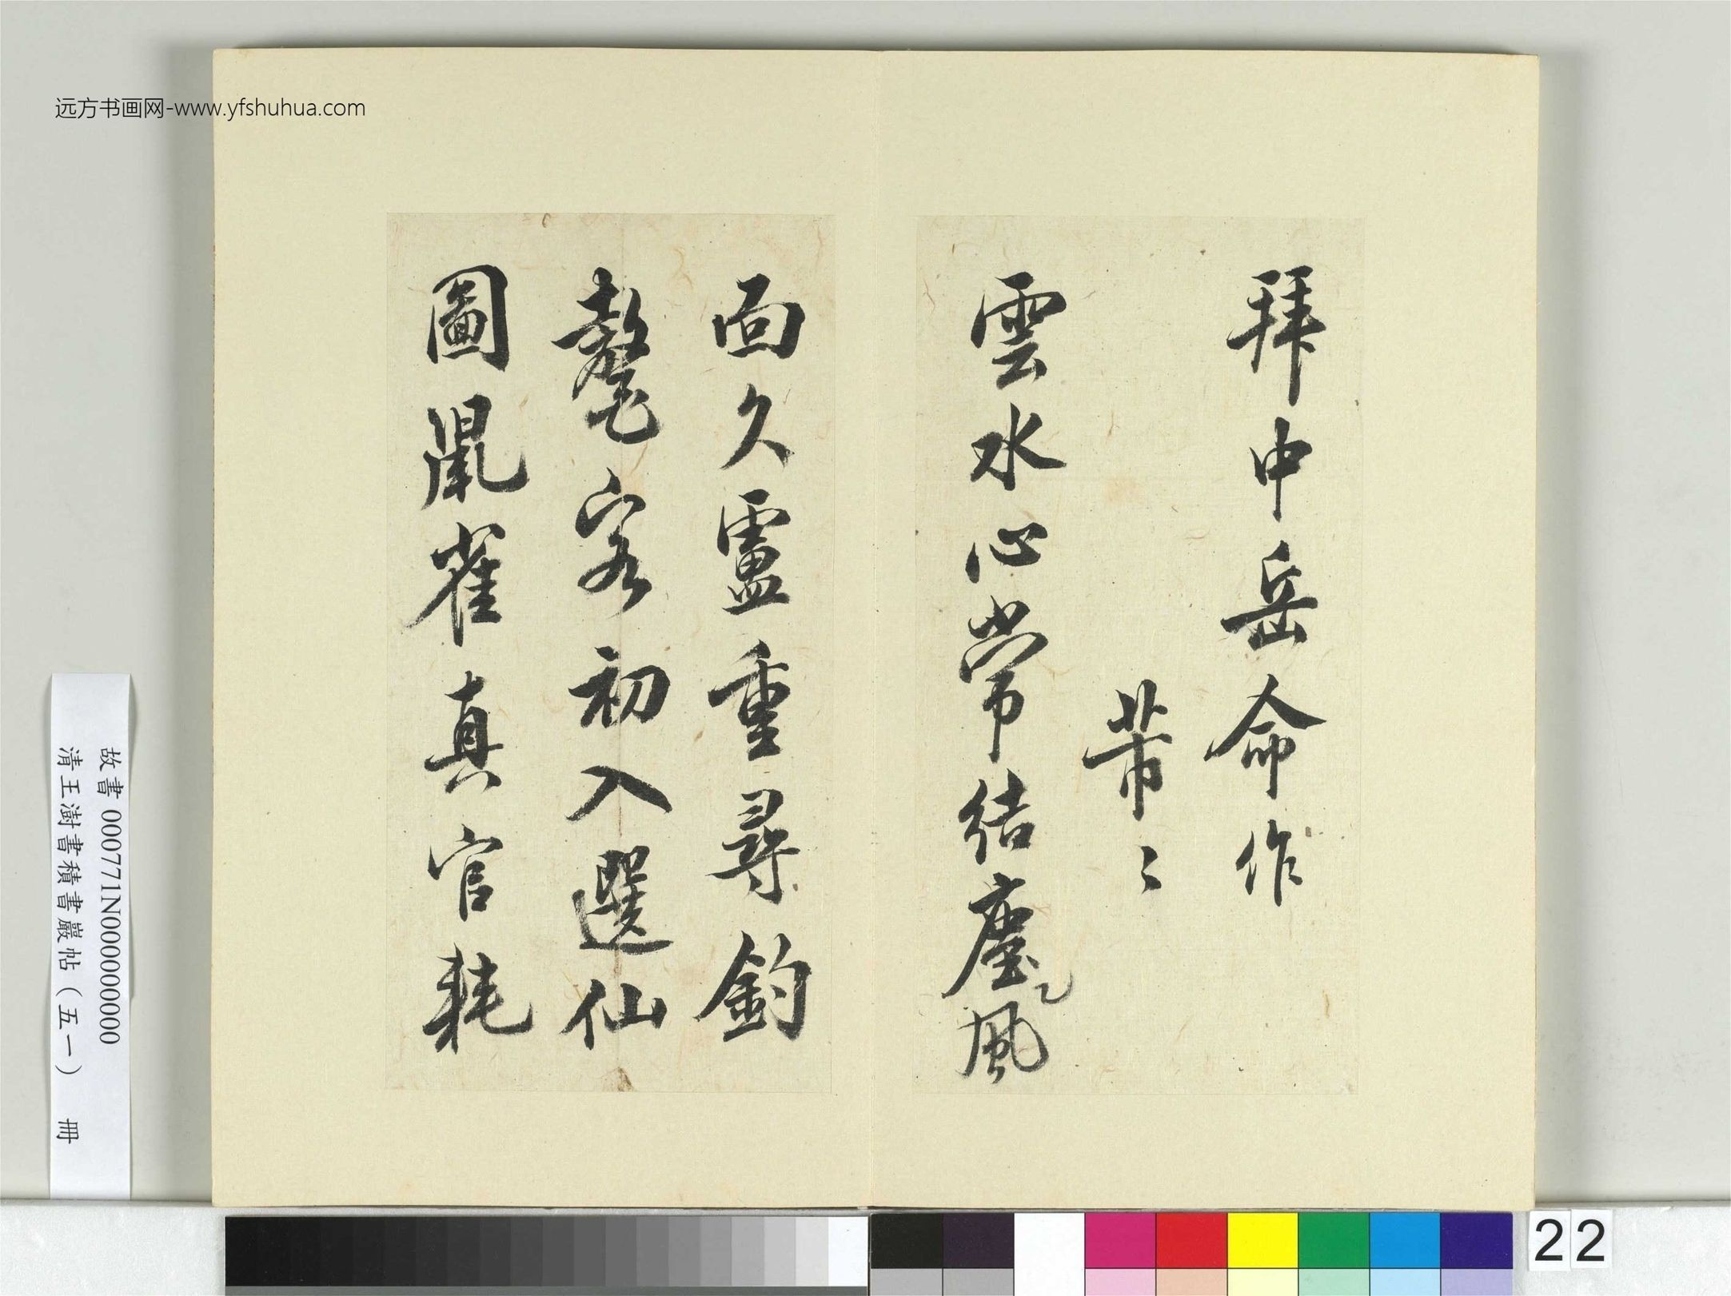 远方书画网-www.yfshuhua.com
拜中岳命作
芾〻
雲水心常結塵風
面久盧重尋釣
鼇客初入選仙
圖鼠雀真官耗
故書000771N000000000
清王澍書積書巖帖(五一) 冊
22